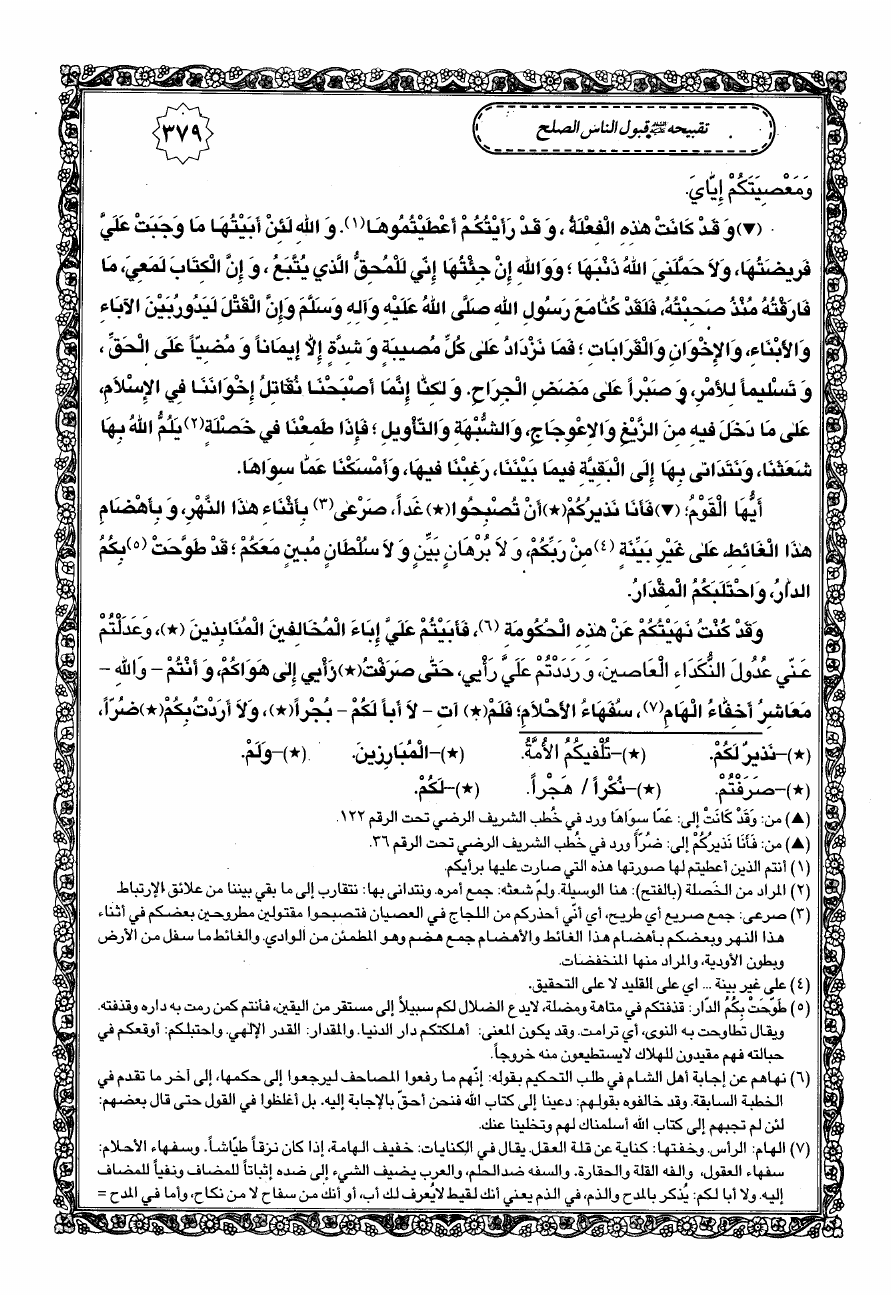 تقبيحه قبول الناس الصلح
٣٧٩
وَمَعْصِيَتَكُمْ إِيَّايَ.
(▼) وَ قَدْ كَانَتْ هٰذِهِ الْفَعْلَةُ ، وَ قَدْ رَأَيْتُكُمْ أَعْطَيْتُمُوهَا(١). وَ اللهِ لَئِنْ أَبَيْتُهَا مَا وَجَبَتْ عَلَيَّ
فَرِيضَتُهَا، وَلاَ حَمَّلَنِيَ اللهُ ذَنْبَهَا ؛ وَوَاللهِ إِنْ جِئْتُهَا إِنِّي لَلْمُحِقُّ الَّذي يُتْبَعُ ، وَ إِنَّ الْكِتَابَ لَمَعِيَ، مَا
فَارَقْتُهُ مُنْذُ صَحِبْتُهُ، فَلَقَدْ كُنَّا مَعَ رَسُولِ اللهِ صَلَّى اللهُ عَلَيْهِ وَآلِهِ وَسَلَّمَ وَإِنَّ الْقَتْلَ لَيَدُورُ بَيْنَ الآبَاءِ
وَالأَبْنَاءِ، وَالإِخْوَانِ وَالْقَرَابَاتِ ؛ فَمَا نَزْدَادُ عَلىٰ كُلِّ مُصيبَةٍ وَ شِدَّةٍ إِلاَّ إيمَاناً وَ مُضِيّاً عَلَى الْحَقِّ ،
وَ تَسْليماً لِلأَمْرِ، وَ صَبْراً عَلىٰ مَضَضِ الْجِرَاحِ. وَ لكِنَّا إِنَّمَا أَصْبَحْنَا نُقَاتِلُ إِخْوَانَنَا فِي الإِسْلاَمِ،
عَلىٰ مَا دَخَلَ فيهِ مِنَ الزَّيْغِ وَالاِعْوِجَاجِ، وَالشُّبْهَةِ وَالتَّأْويلِ ؛ فَإِذَا طَمِعْنَا في خَصْلَةٍ(٢) يَلُمُّ اللهُ بِهَا
شَعَثَنَا، وَنَتَدَانى بِهَا إِلَى الْبَقِيَّةِ فيمَا بَيْنَنَا، رَغِبْنَا فيهَا، وَأَمْسَكْنَا عَمَّا سِوَاهَا.
أَيُّهَا الْقَوْمُ؛ (▼) فَأَنَا نَذيرُكُمْ(★) أَنْ تُصْبِحُوا(★) غَداً، صَرْعىٰ(٣) بِأَثْنَاءِ هٰذَا النَّهْرِ، وَ بِأَهْضَامِ
هٰذَا الْغَائِطِ، عَلىٰ غَيْرِ بَيِّنَةٍ (٤) مِنْ رَبِّكُمْ، وَ لاَ بُرْهَانٍ بَيِّنٍ وَ لاَ سُلْطَانٍ مُبينٍ مَعَكُمْ ؛ قَدْ طَوَّحَتْ (٥) بِكُمُ
الدَّارُ، وَ احْتَبَلَكُمُ الْمِقْدَارُ.
وَقَدْ كُنْتُ نَهَيْتُكُمْ عَنْ هٰذِهِ الْحُكُومَةِ (٦)، فَأَبَيْتُمْ عَلَيَّ إِبَاءَ الْمُخَالِفينَ الْمُنَابِذينَ (★)، وَعَدَلْتُمْ
عَنّي عُدُولَ النُّكَدَاءِ الْعَاصينَ، وَ رَدَدْتُمْ عَلَيَّ رَأْيي، حَتّٰى صَرَفْتُ(★) رَأْيي إِلىٰ هَوَاكُمْ، وَ أَنْتُمْ – وَاللهِ –
مَعَاشِرُ أَخِفَّاءُ الْهَامِ(٧)، سُفَهَاءُ الأَحْلاَمِ؛ فَلَمْ(★) آتِ – لاَ أَباً لَكُمْ – بُجْراً(★)، وَلاَ أَرَدْتُ بِكُمْ(★) ضُرّاً،
(★)–نَذيرٌ لَكُمْ. (★)–تُلْفيكُمُ الأُمَّةُ. (★)–الْمُبَارِزينَ. (★)–وَلَمْ.
(★)–صَرَفْتُمْ. (★)–نُكْراً / هَجْراً. (★)–لَكُمْ.
(▲) من: وَقَدْ كَانَتْ إلى: عَمَّا سِوَاهَا ورد في خُطب الشريف الرضي تحت الرقم ١٢٢.
(▲) من: فَأَنَا نَذيرُكُمْ إلى: ضُرّاً ورد في خُطب الشريف الرضي تحت الرقم ٣٦.
(١) أنتم الذين أعطيتم لها صورتها هذه التي صارت عليها برأيكم.
(٢) المراد من الخَصلة (بالفتح): هنا الوسيلة. ولمّ شعثه: جمع أمره. ونتدانى بها: نتقارب إلى ما بقي بيننا من علائق الإرتباط
(٣) صرعى: جمع صريع أي طريح، أي أنّي أحذركم من اللجاج في العصيان فتصبحوا مقتولين مطروحين بعضكم في أثناء
هذا النهر وبعضكم بأهضام هذا الغائط والأهضام جمع هضم وهو المطمئن من الوادي. والغائط ما سفل من الأرض
وبطون الأودية، والمراد منها المنخفضات.
(٤) على غير بينة ... اي على القليد لا على التحقيق.
(٥) طَوَّحَتْ بِكُمُ الدَّار: قذفتكم في متاهة ومضلة، لايدع الضلال لكم سبيلاً إلى مستقر من اليقين، فأنتم كمن رمت به داره وقذفته.
ويقال تطاوحت به النوى، أي ترامت. وقد يكون المعنى: أهلكتكم دار الدنيا. والمقدار: القدر الإلهي. واحتبلكم: أوقعكم في
حبالته فهم مقيدون للهلاك لايستطيعون منه خروجاً.
(٦) نهاهم عن إجابة أهل الشام في طلب التحكيم بقوله: إنّهم ما رفعوا المصاحف ليرجعوا إلى حكمها، إلى أخر ما تقدم في
الخطبة السابقة. وقد خالفوه بقولهم: دعينا إلى كتاب الله فنحن أحقّ بالإجابة إليه. بل أغلظوا في القول حتى قال بعضهم:
لئن لم تجبهم إلى كتاب الله أسلمناك لهم وتخلينا عنك.
(٧) الهام: الرأس. وخفتها: كناية عن قلة العقل. يقال في الكنايات: خفيف الهامة، إذا كان نزقاً طيّاشاً. وسفهاء الأحلام:
سفهاء العقول، والفه القلة والحقارة. والسفه ضدالحلم، والعرب يضيف الشيء إلى ضده إثباتاً للمضاف ونفياً للمضاف
إليه. ولا أبا لكم: يُذكر بالمدح والذم، في الذم يعني أنك لقيط لايُعرف لك أب، أو أنك من سفاح لا من نكاح، وأما في المدح =